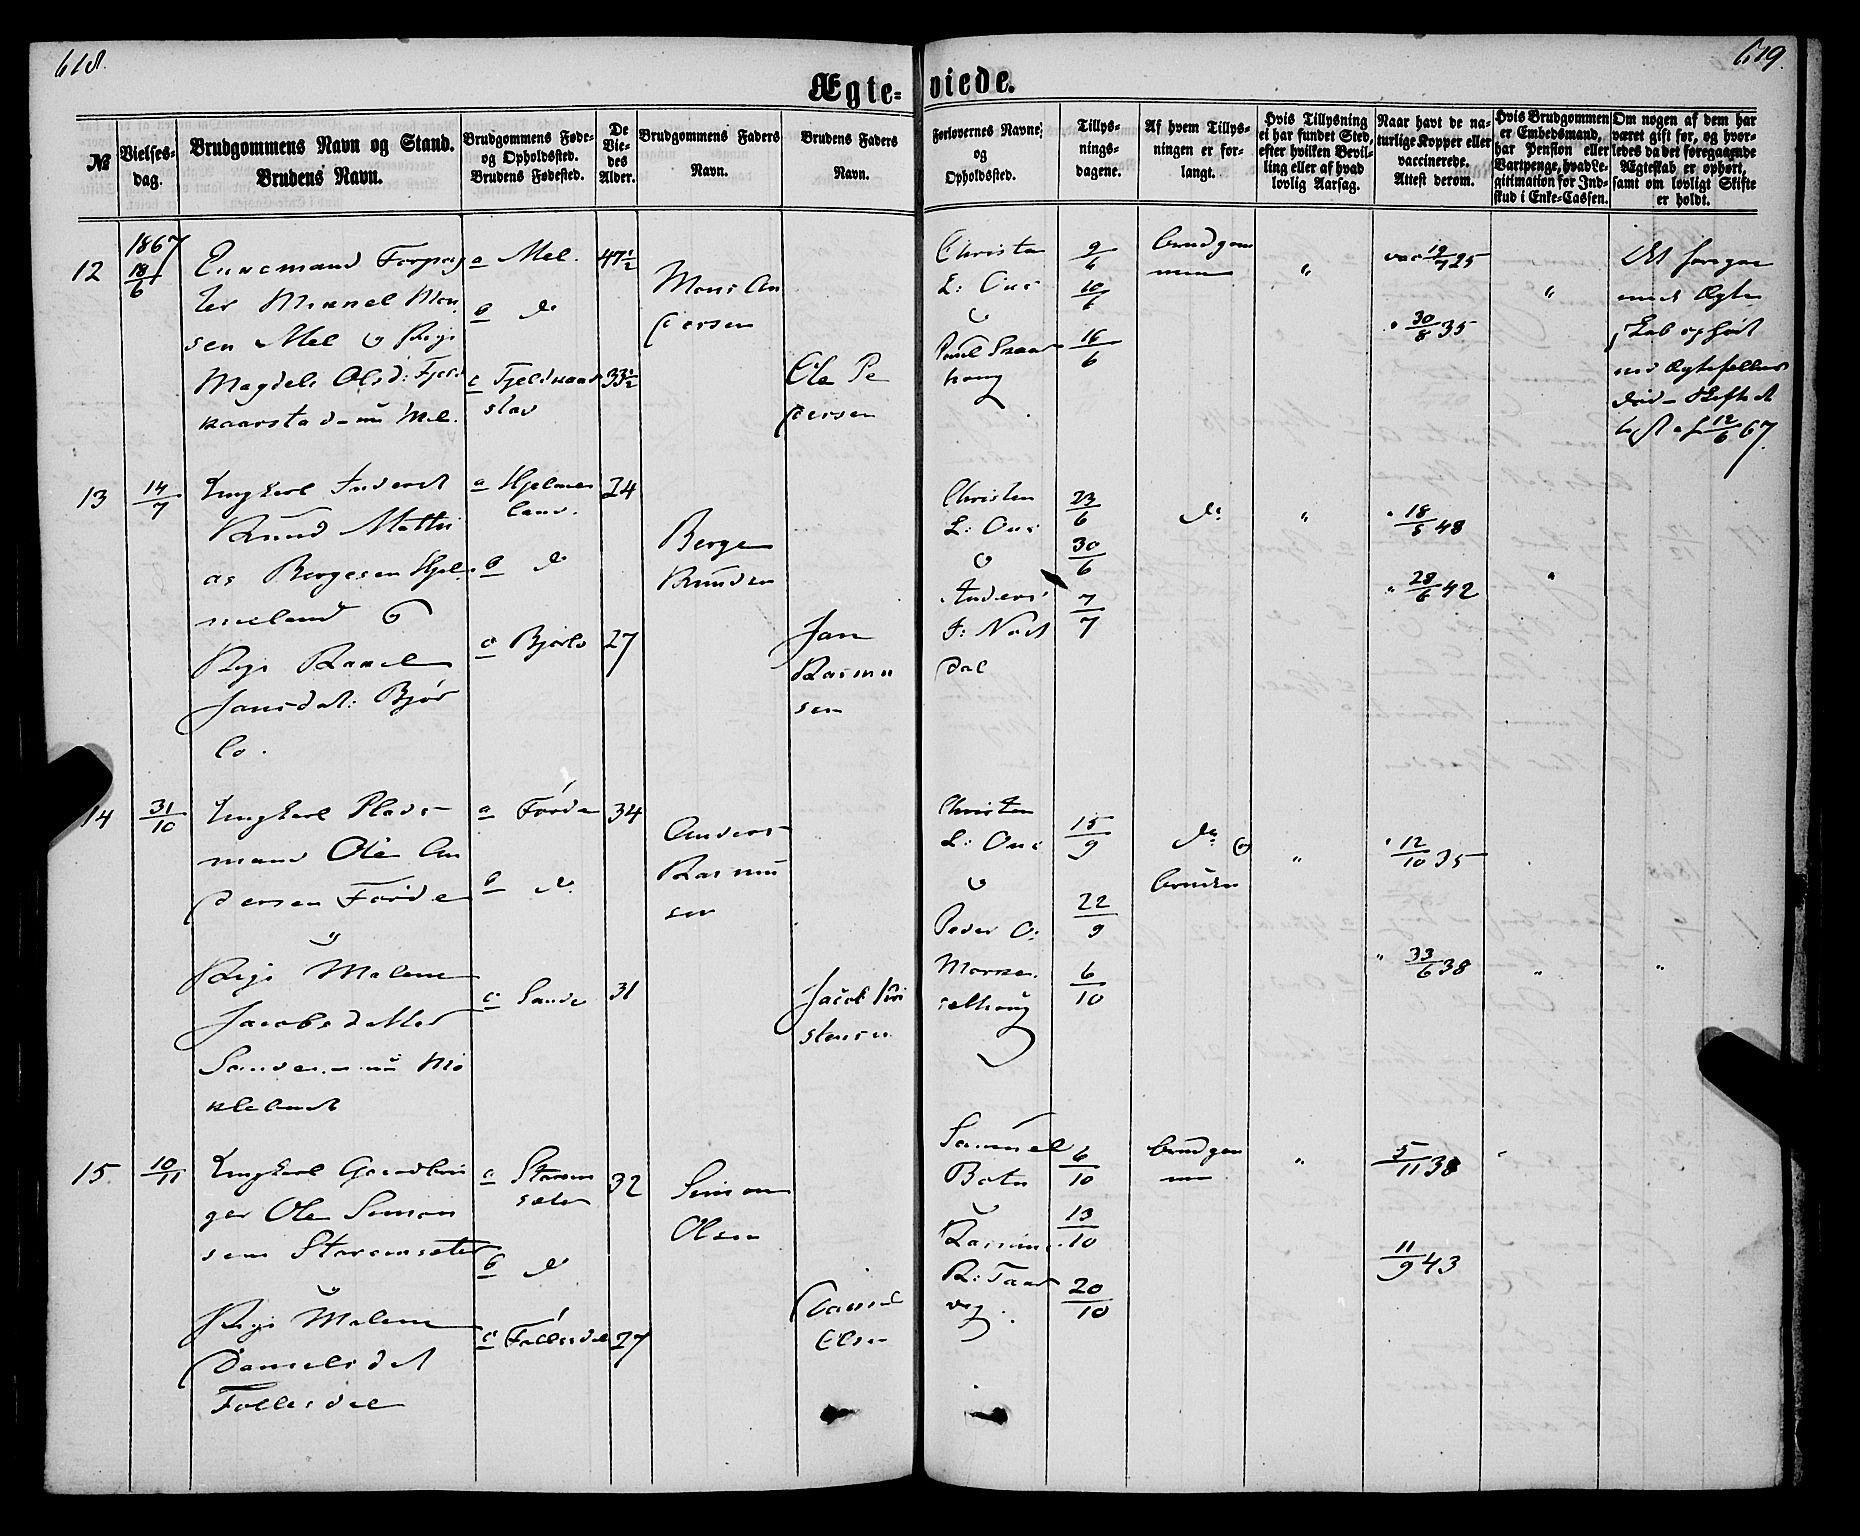 618.
619.
Ægte-
viede.
№
Vielses-
dag.
Brudgommens Navn og Stand.
Brudens Navn.
Brudgommens Føde-
og Opholdssted.
Brudens Fødested.
De
Vie-
des
Alder.
Brudgommens Faders
Navn.
Brudens Faders
Navn.
Forlovernes Navne,
og
Opholdssted.
Tillys-
nings-
dagene.
Af hvem Tillys-
ningen er for-
langt.
Hvis Tillysning
ei har fundet Sted,
efter hvilken Bevil-
ling eller af hvad
lovlig Aarsag.
Naar havt de na-
turlige Kopper eller
vaccinerede.
Attest derom.
Hvis Brudgommen
er Embedsmand,
har Pension eller
Vartpenge, hvad Le-
gitimation for Ind-
skud i Enke-Cassen.
Om nogen af dem har
været gift før, og hvor-
ledes da det foregaaende
Ægteskab er ophørt,
samt om lovligt Skifte
er holdt.
12
1867
18/6
Enkemand Forpag
ter Mikkel Mon
sen Mel & Pige
Magdele Olsd: Fjeld
kaarstad nu Mel.
a Mel.
b do
c Fjeldkaar
stad
47 1/2
33 1/2
Mons An
dersen
Ole Pe
dersen
Christen
L: Ous
&
Poul Svaar
houg
9/6
10/6
16/6
brudgom
men
"
vac 19/7 25
" 30/8 35
"
Det foregaa
ende Ægte
skab ophørt
ved Ægtefellens
død – Skifte
12/6 67.
13
14/7
Ungkarl
Knud Mathi
as Børgesen Hjel
meland &
Pige Rakel
Jansdat: Bjør
lo.
a Hjelme
land.
b do
c Bjørlo
24
27
Børge
Knudsen
Jan
Rasmu
sen
Christen
L: Ous
&
Anders
J: Nord
dal
23/6
30/6
7/7
do
"
" 18/5 48
" 28/6 42
"
14
31/10
Ungkarl Plads
mand Ole An
dersen Førde
&
Pige Malene
Jacobsdatter
Sande nu My
klebust
a Førde
b do
c Sande
34
31
Anders
Rasmu
sen
Jacob Kri
stensen
Christen
L: Ous
&
Peder O:
15/9
22/9
6/10
do &
bruden
"
" 12/10 35
" 33/6 38
"
"
15.
10/11
Ungkarl Gaardbru
ger Ole Simon
sen Storemsæter
&
Pige Malene
Danielsdat
Follesdal
a Storem
sæter
b do
c Follesdal
32
27
Simon
Olsen
Daniel
Olsen
Samuel
Botn
&
Rasmus
R: Taar
vig.
6/10
13/10
20/10
brudgom
men
"
5/11 38
11/9 43
"